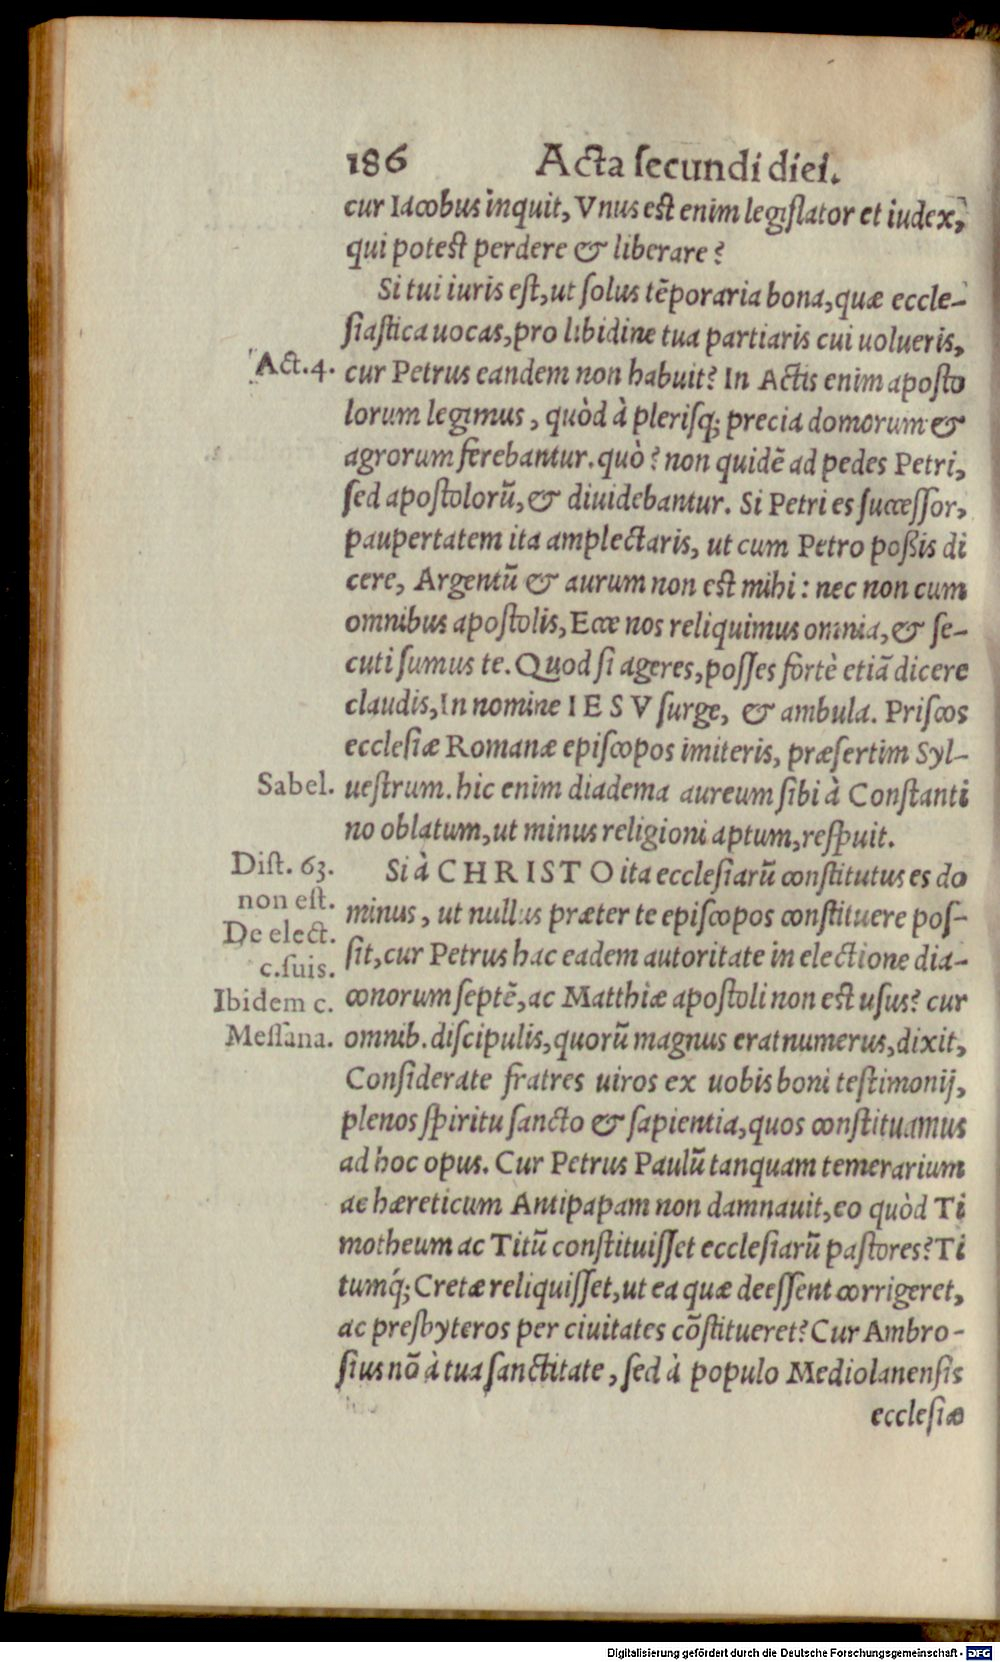 186 Acta ſecundi diei.
cur Iacobus inquit, Vnus eſt enim legiſlator et iudex,
qui poteſt perdere & liberare?
Si tui iuris eſt, ut ſolus tẽporaria bona, quæ eccle-
ſiaſtica uocas, pro libidine tua partiaris cui uolueris,
Act. 4. cur Petrus eandem non habuit? In Actis enim apoſto
lorum legimus, quòd à pleriſq; precia domorum &
agrorum ferebantur. quò? non quidẽ ad pedes Petri,
ſed apoſtolorũ, & diuidebantur. Si Petri es ſucceſſor,
paupertatem ita amplectaris, ut cum Petro poßis di
cere, Argentũ & aurum non eſt mihi: nec non cum
omnibus apoſtolis, Ecce nos reliquimus omnia, & ſe-
cuti ſumus te. Quod ſi ageres, poſſes fortè etiã dicere
claudis, In nomine IESV ſurge, & ambula. Priſcos
eccleſiæ Romanæ epiſcopos imiteris, præſertim Syl-
Sabel. ueſtrum. hic enim diadema aureum ſibi à Conſtanti
no oblatum, ut minus religioni aptum, reſpuit.
Diſt. 63. Si à CHRISTO ita eccleſiarũ conſtitutus es do
non eſt. minus, ut nullus præter te epiſcopos conſtituere poſ-
De elect. ſit, cur Petrus hac eadem autoritate in electione dia-
c. ſuis.
Ibidem c. conorum ſeptẽ, ac Matthiæ apoſtoli non eſt uſus? cur
Meſſana. omnib. diſcipulis, quorũ magnus erat numerus, dixit,
Conſiderate fratres uiros ex uobis boni teſtimonij,
plenos ſpiritu ſancto & ſapientia, quos conſtituamus
ad hoc opus. Cur Petrus Paulũ tanquam temerarium
ac hæreticum Antipapam non damnauit, eo quòd Ti
motheum ac Titũ conſtituiſſet eccleſiarũ paſtores? Ti
tumq́; Cretæ reliquiſſet, ut ea quæ deeſſent corrigeret,
ac preſbyteros per ciuitates cõſtitueret? Cur Ambro-
ſius nõ à tua ſanctitate, ſed à populo Mediolanenſis
eccleſiæ
Digitalisierung gefördert durch die Deutsche Forschungsgemeinschaft - DFG